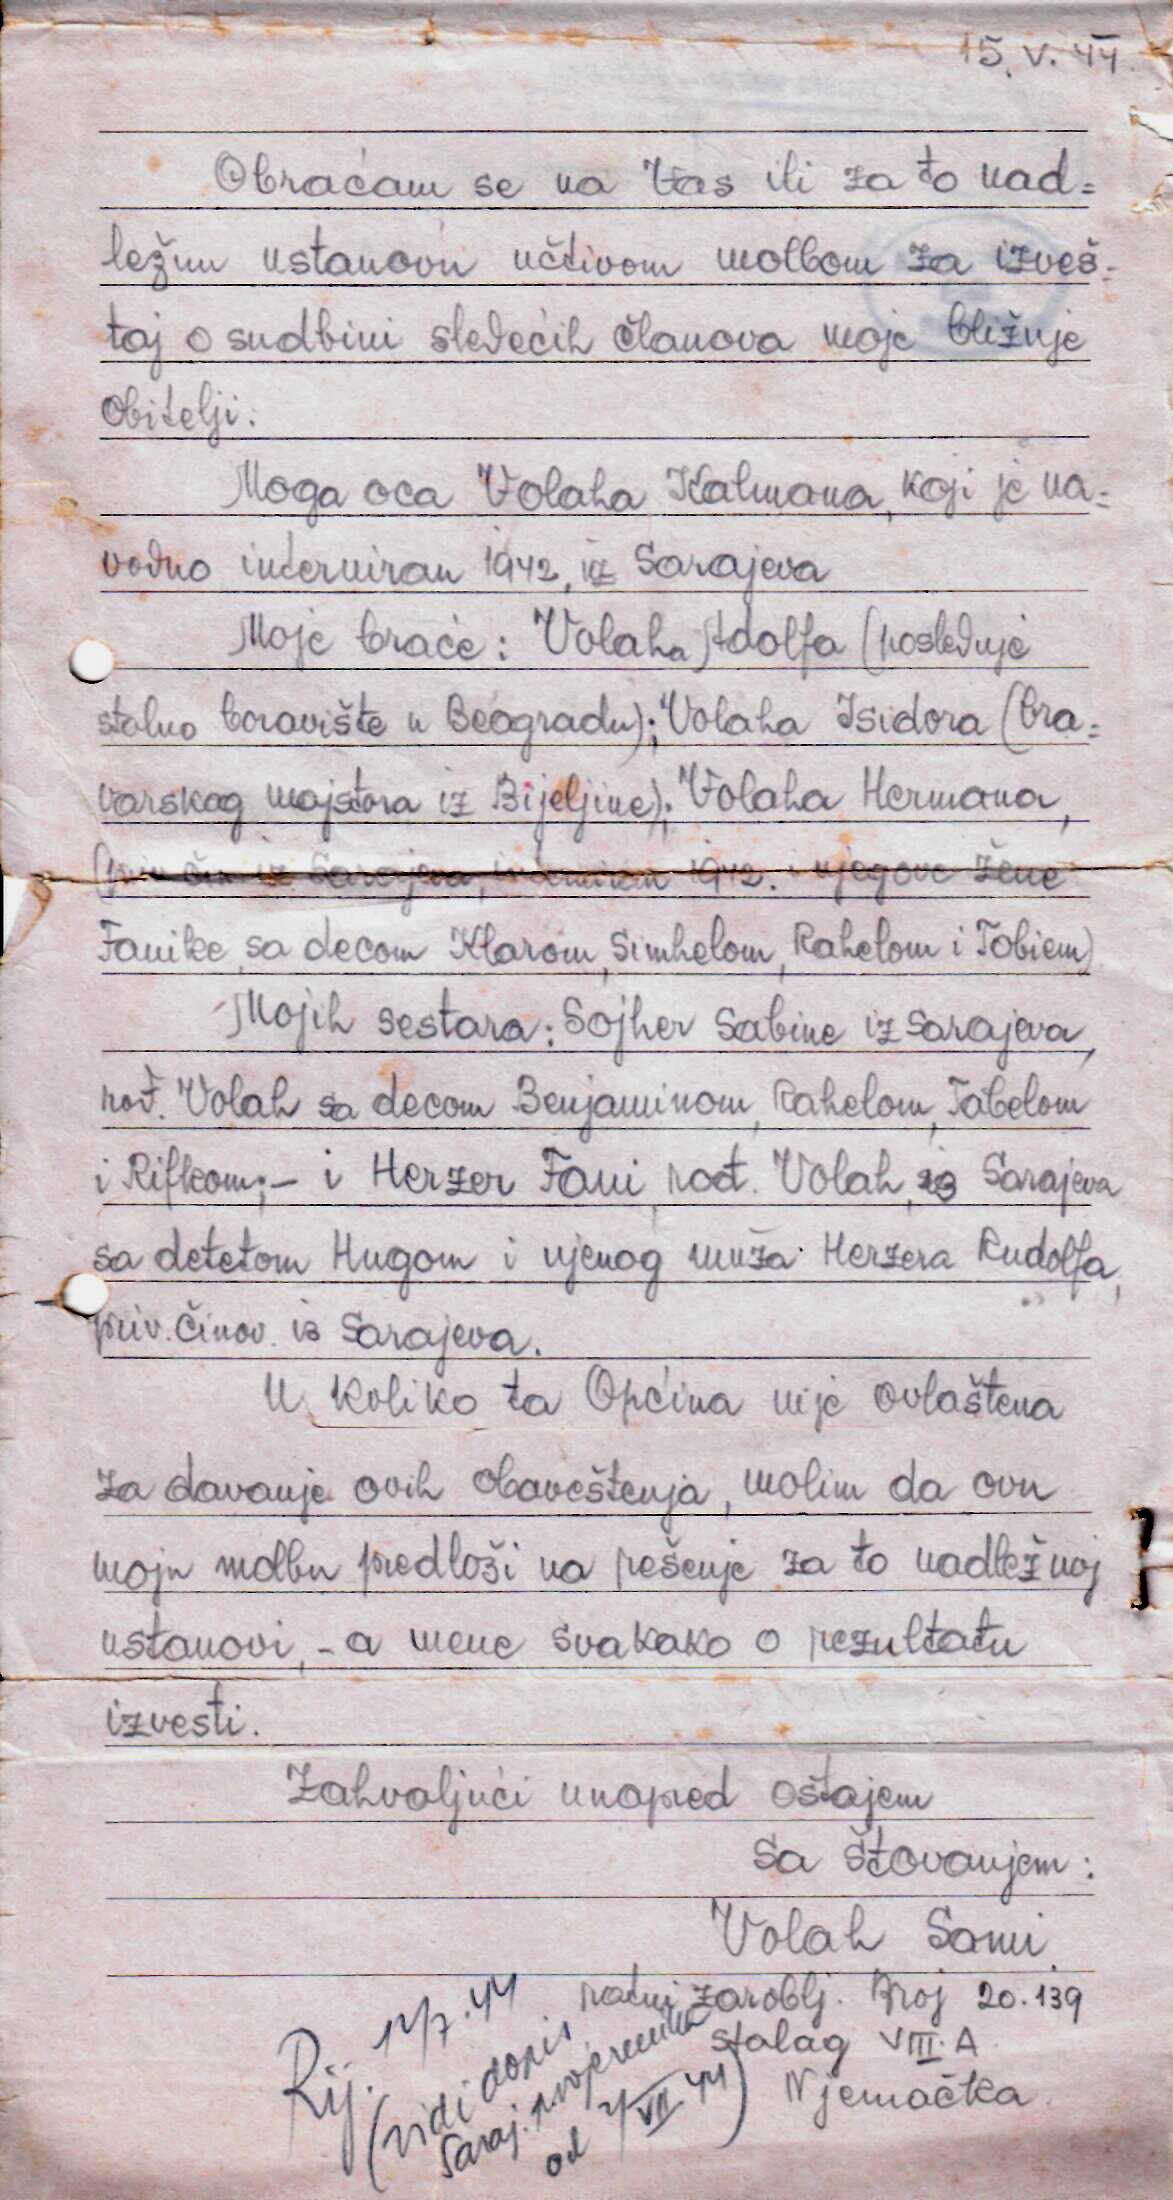 15. V. 44.
Obraćam se na Vas ili za to nad=
ležnu ustanovu učtivom molbom za izveš=
taj o sudbini sledećih članova moje bližnje
obitelji:
Moga oca Volaha Kalmana, koji je na=
vodno interniran 1942, iz Sarajeva
Moje braće: Volaha Adolfa (poslednje
stalno boravište u Beogradu); Volaha Isidora (bra=
varskog majstora iz Bijeljine); Volaha Hermana,
(priv. čin. iz Sarajeva, interniran 1942. i njegove žene
Fanike, sa decom Klarom, Simhelom, Rahelom i Tobiem)
Mojih sestara: Sojher Sabine iz Sarajeva,
rođ. Volah sa decom Benjaminom, Rahelom, Tabelom
i Rifkom; - i Herzer Fani rođ. Volah, iz Sarajeva
sa detetom Hugom i njenog muža Herzera Rudolfa,
priv. činov. iz Sarajeva.
U koliko ta Općina nije ovlaštena
za davanje ovih obaveštenja, molim da ovu
moju molbu predloži na rešenje za to nadležnoj
ustanovi, - a mene svakako o rezultatu
izvesti.
Zahvaljući unapred oštajem
Sa štovanjem:
Volah Sami
ratni zaroblj. Broj 20.139
Stalag VIII. A
Njemačka.
Rij. 12/7.44
(vidi dopis
Saraj. povjerenika
od 7/VII 44)